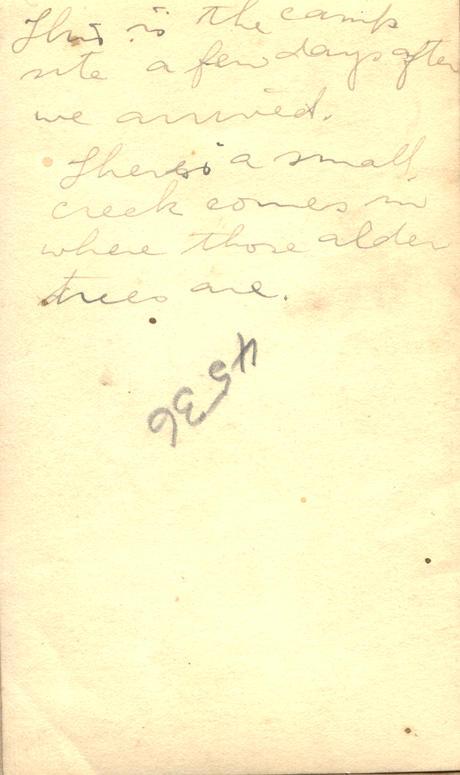 This is the camp
site a few days after
we arrived.
There's a small
creek comes in
where those alder
trees are.
4536